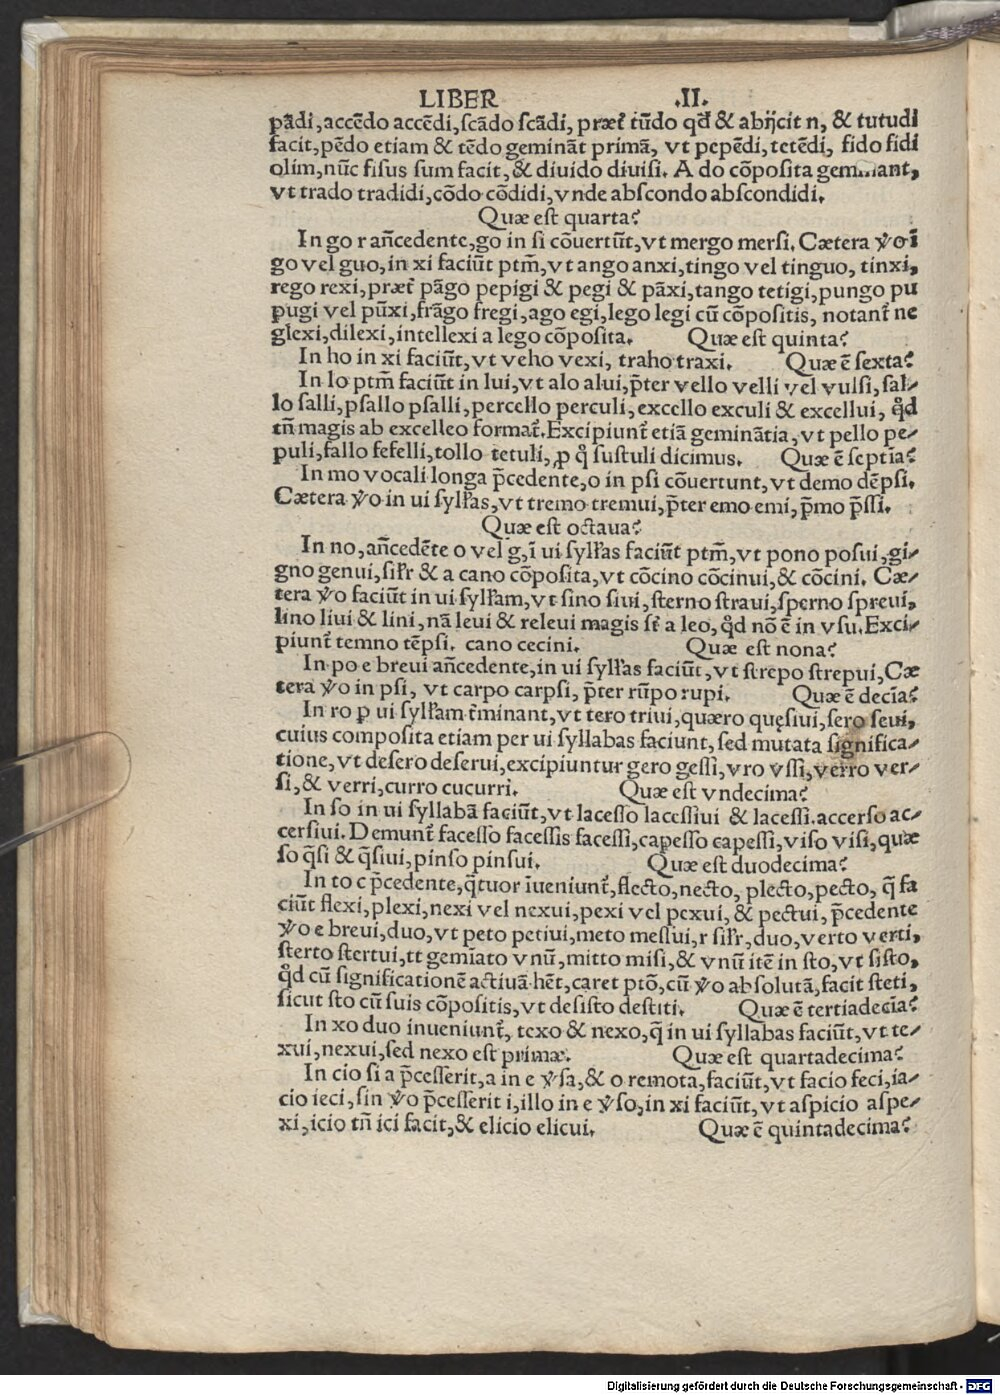 LIBER .II.
pādi,accēdo accēdi,ſcādo ſcādi, præt̃ tūdo qđ & abijcit n, & tutudi
facit,pēdo etiam & tēdo geminãt primã, vt pepēdi,tetēdi, fido fidi
olim,nūc fiſus ſum facit,& diuido diuiſi. A do cōpoſita geminant,
vt trado tradidi,cōdo cōdidi,vnde abſcondo abſcondidi.
Quæ eſt quarta?
In go r añcedente,go in ſi cōuertūt,vt mergo merſi. Cætera ꝟo ī
go vel guo,in xi faciūt ptm̄,vt ango anxi,tingo vel tinguo, tinxi,
rego rexi,præt̃ pāgo pepigi & pegi & pāxi,tango tetigi,pungo pu
pugi vel pūxi,frāgo fregi,ago egi,lego legi cū cōpoſitis, notant̃ ne
glexi,dilexi,intellexi a lego cōpoſita. Quæ eſt quinta?
In ho in xi faciūt,vt veho vexi, traho traxi. Quæ ē ſexta?
In lo ptm̄ faciūt in lui,vt alo alui,p̄ter vello velli vel vulſi,ſal/
lo ſalli,pſallo pſalli,percello perculi,excello exculi & excellui, qđ
tñ magis ab excelleo format̃.Excipiunt̃ etiã geminãtia,vt pello pe/
puli,fallo fefelli,tollo tetuli,ꝓ q̊ ſuſtuli dicimus. Quæ ē ſeptīa?
In mo vocali longa p̄cedente,o in pſi cōuertunt,vt demo dēpſi.
Cætera ꝟo in ui ſyll'as,vt tremo tremui,p̄ter emo emi,p̄mo p̄ſſi.
Quæ eſt octaua?
In no,añcedēte o vel g,ī ui ſyll'as faciūt ptm̄,vt pono poſui,gi/
gno genui,ſil'r & a cano cōpoſita,vt cōcino cōcinui,& cōcini. Cæ/
tera ꝟo faciūt in ui ſyll'am,vt ſino ſiui,ſterno ſtraui,ſperno ſpreui,
lino liui & lini,nã leui & releui magis ſt̃ a leo,qđ nō ē in vſu.Exci/
piunt̃ temno tēpſi. cano cecini. Quæ eſt nona?
In po e breui añcedente,in ui ſyll'as faciūt,vt ſtrepo ſtrepui,Cæ
tera ꝟo in pſi, vt carpo carpſi, p̄ter rūpo rupi. Quæ ē decīa?
In ro ꝑ ui ſyll'am t̃minant,vt tero triui,quæro quęſiui,ſero ſeui,
cuius compoſita etiam per ui ſyllabas faciunt,ſed mutata ſignifica/
tione,vt deſero deſerui,excipiuntur gero geſſi,vro vſſi,verro ver/
ſi,& verri,curro cucurri. Quæ eſt vndecima?
In ſo in ui ſyllabã faciūt,vt laceſſo laceſſiui & laceſſi.accerſo ac/
cerſiui.Demunt̃ faceſſo faceſſis faceſſi,capeſſo capeſſi,viſo viſi,quæ
ſo q̄ſi & q̄ſiui,pinſo pinſui. Quæ eſt duodecima?
In to c p̄cedente,q̄tuor īueniunt̃,flecto,necto, plecto,pecto, q̄ fa
ciūt flexi,plexi,nexi vel nexui,pexi vel pexui, & pectui, p̄cedente
ꝟo e breui,duo,vt peto petiui,meto meſſui,r ſil'r,duo,verto verti,
ſterto ſtertui,tt gemīato vnū,mitto miſi,& vnū itē in ſto,vt ſiſto,
qđ cū ſignificationē actiuã hēt,caret ptō,cū ꝟo abſolutã,facit ſteti,
ſicut ſto cū ſuis cōpoſitis,vt deſiſto deſtiti. Quæ ē tertiadecīa?
In xo duo inueniunt̃, texo & nexo,q̄ in ui ſyllabas faciūt,vt te/
xui,nexui,ſed nexo eſt primæ. Quæ eſt quartadecima?
In cio ſi a p̄ceſſerit,a in e ꝟſa,& o remota,faciūt,vt facio feci,ia/
cio ieci,ſin ꝟo p̄ceſſerit i,illo in e ꝟſo,in xi faciūt,vt aſpicio aſpe/
xi,icio tñ ici facit,& elicio elicui. Quæ ē quintadecima?
Digitalisierung gefördert durch die Deutsche Forschungsgemeinschaft - DFG